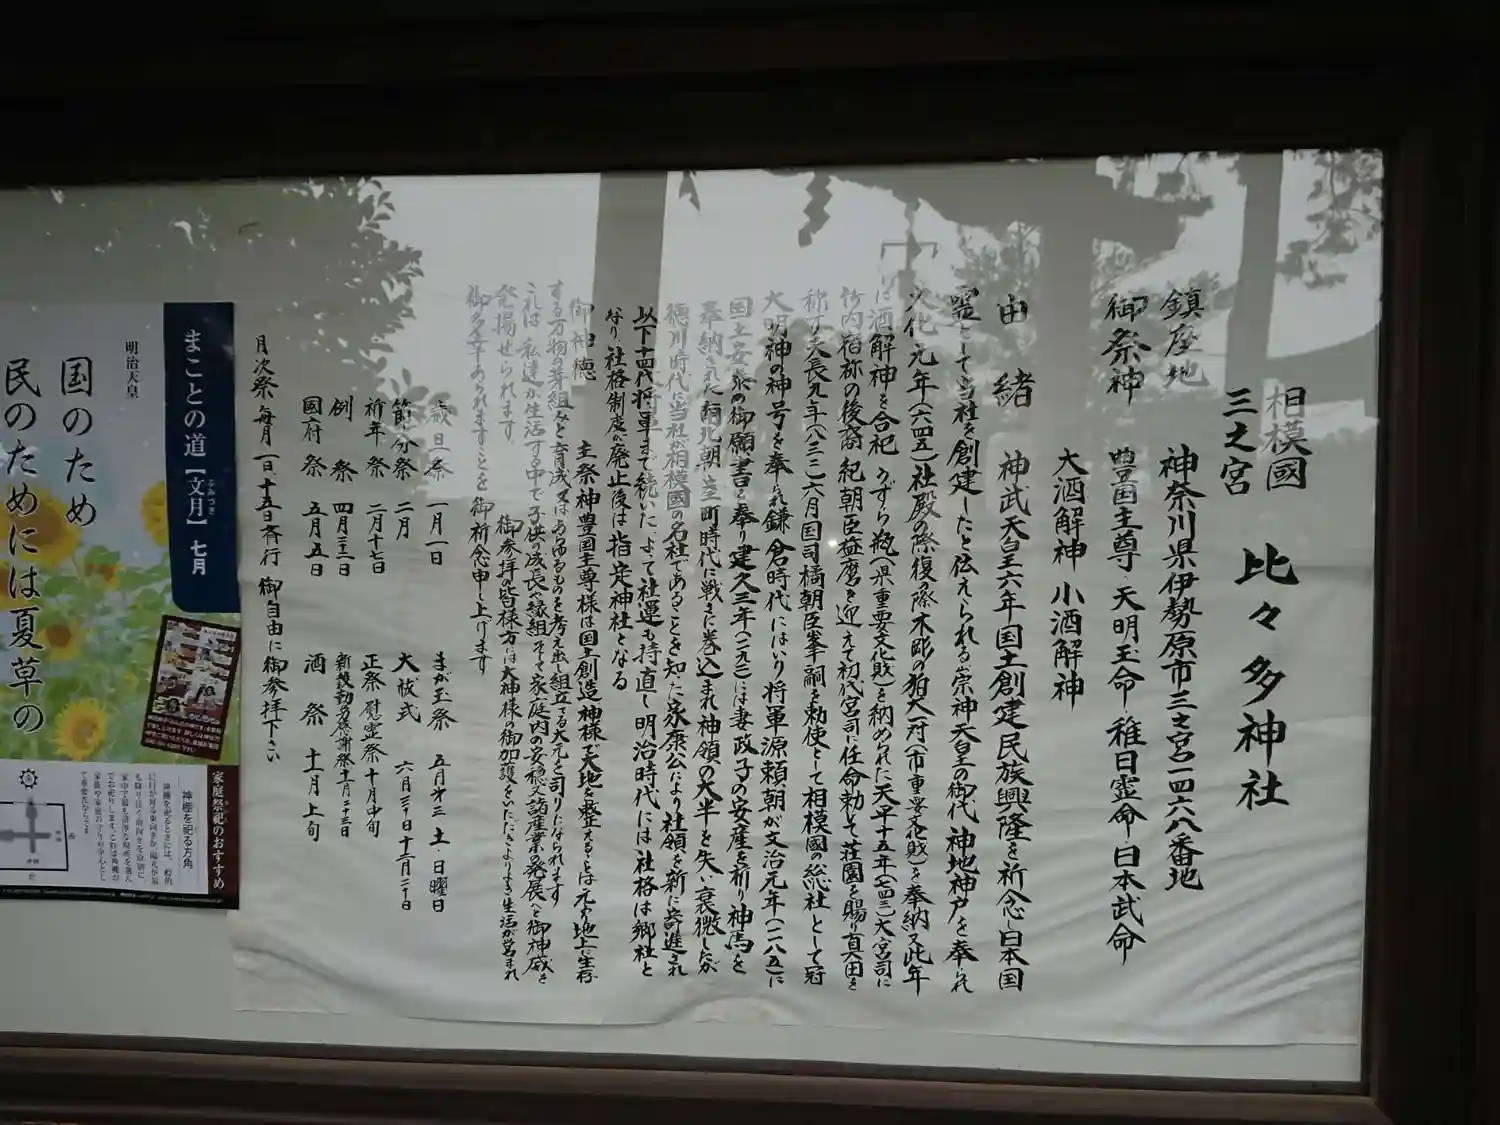 相模國
三之宮 比々多神社
鎮座地 神奈川県伊勢原市三之宮一四六八番地
御祭神 豊国主尊・天明玉命 稚日霊命・日本武命
大酒解神 小酒解神
由緒 神武天皇六年国土創建民族興隆を祈念し日本国
霊として当社を創建したと伝えられる 崇神天皇の御代神地神戸を奉られ
大化元年(六四五)社殿の際復の際木彫の狛犬一対(市重要文化財)を奉納又此年
に酒解神を合祀 うずら瓶(県重要文化財)を納められた 天平十五年(七四三)大宮司に
竹内宿祢の後裔 紀朝臣益麿を迎えて初代宮司に任命勅して荘園を賜り真田を
称す 天長九年(八三二)六月国司橘朝臣峯嗣を勅使として相模國の総社として冠
大明神の神号を奉られ鎌倉時代にはいり将軍源頼朝が文治元年(一一八五)に
国土安泰の御願書を奉り建久三年(一一九二)には妻政子の安産を祈り神馬を
奉納された 南北朝 室町時代に戦さに巻込まれ神領の大半を失い衰微したが
徳川時代に当社が相模國の名社であることを知った家康公により社領を新に寄進され
以下十四代将軍まで続いた よって社運も持直し明治時代には社格は郷社と
なり 社格制度が廃止後は指定神社となる
御神徳 主祭神豊国主尊様は国土創造神様で天地を整えるとは元々地上に生存
する万物の芽組みと育成又はあらゆるものを考え出し組立てる大元と司りになられます
これは 私達が生活する中で子供の成長や縁組 そして家庭内の安穏又諸産業の発展へと御神威を
発揚せられます 御参拝の皆様方には大神様の御加護をいただきよりよき生活が営まれ
御多幸であられますことを御祈念申し上げます
歳旦祭 一月一日
節分祭 二月
祈年祭 二月十七日
例祭 四月二十二日
國府祭 五月五日
まが玉祭 五月第三土日曜日
大祓式 六月三十日 十二月三十日
正祭 慰霊祭 十月中旬
新穀勤労感謝祭 十一月二十三日
酒祭 十二月上旬
月次祭 毎月一日、十五日斉行 御自由に御参拝下さい
まことの道【文月】七月
ふみつき
明治天皇
国のため
民のためには夏草の
家庭祭祀のおすすめ
神棚を祀る方角